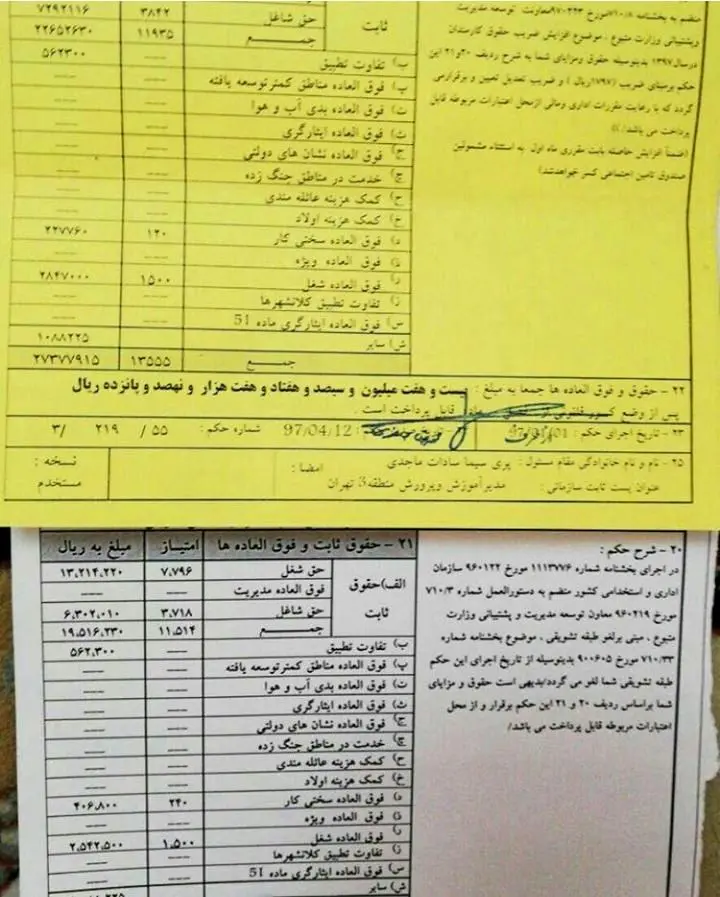 منضم به بخشنامه ۷۱۰/۸مورخ ۹۷۰۲۲۳معاونت توسعه مدیریت
وپشتیبانی وزارت متبوع ، موضوع افزایش ضریب حقوق کارمندان
درسال۱۳۹۷ بدینوسیله حقوق ومزایای شما به شرح ردیف ۲۰و۲۱ این
حکم برمبنای ضریب (۱۷۹۷ریال ) و ضریب تعدیل تعیین و برقرارمی
گردد که با رعایت مقررات اداری ومالی ازمحل اعتبارات مربوطه قابل
پرداخت می باشد/
(ضمناً افزایش حاصله بابت مقرری ماه اول به استثناء مشمولین
صندوق تامین اجتماعی کسر خواهدشد)
ثابت
حق شاغل ۳۸۴۲ ۷۲۹۲۱۱۶
جمـــع ۱۱۹۳۵ ۲۲۶۵۲۶۳۰
ب) تفاوت تطبیق --- ۵۶۲۳۰۰
پ) فوق العاده مناطق کمترتوسعه یافته --- ---
ت) فوق العاده بدی آب و هوا --- ---
ث) فوق العاده ایثارگری --- ---
ج) فوق العاده نشان های دولتی --- ---
چ) خدمت در مناطق جنگ زده --- ---
ح) کمک هزینه عائله مندی --- ---
خ) کمک هزینه اولاد --- ---
د) فوق العاده سختی کار ۱۲۰ ۲۲۷۷۶۰
ذ) فوق العاده ویژه --- ---
ر) فوق العاده شغل ۱۵۰۰ ۲۸۴۷۰۰۰
ز) تفاوت تطبیق کلانشهرها --- ---
س) فوق العاده ایثارگری ماده 51 --- ---
ش) سایر ۱۰۸۸۲۲۵
جمـــع ۱۳۵۵۵ ۲۷۳۷۷۹۱۵
۲۲ - حقوق و فوق العاده ها جمعا به مبلغ : بیست و هفت میلیون و سیصد و هفتاد و هفت هزار و نهصد و پانزده ریال
پس از وضع کسور قابل پرداخت است .
۲۳ - تاریخ اجرای حکم : 97/01/01 97/04/12 شماره حکم : ۵۵ / ۲۱۹ /۳
۲۵ - نام و نام خانوادگی مقام مسئول : پری سیما سادات ماجدی امضا : نسخه :
عنوان پست ثابت سازمانی : مدیرآموزش وپرورش منطقه3 تهران مستخدم
۲۰ - شرح حکم :
در اجرای بخشنامه شماره ۱۱۱۳۷۷۶ مورخ ۹۶۰۱۲۲ سازمان
اداری و استخدامی کشور منضم به دستورالعمل شماره ۷۱۰/۳
مورخ ۹۶۰۲۱۹ معاون توسعه مدیریت و پشتیبانی وزارت
متبوع ، مبنی برلغو طبقه تشویقی ، موضوع بخشنامه شماره
۷۱۰/۳۳ مورخ ۹۰۰۶۰۵ بدینوسیله از تاریخ اجرای این حکم
طبقه تشویقی شما لغو می گردد/بدیهی است حقوق و مزایای
شما براساس ردیف ۲۰ و ۲۱ این حکم برقرار و از محل
اعتبارات مربوطه قابل پرداخت می باشد/
۲۱ - حقوق ثابت و فوق العاده ها امتیـاز مبلغ به ریال
الف)حقوق ثابت
حق شغل ۷,۷۹۶ ۱۳,۲۱۴,۲۲۰
فوق العاده مدیریت --- ---
حق شاغل ۳,۷۱۸ ۶,۳۰۲,۰۱۰
جمـــع ۱۱,۵۱۴ ۱۹,۵۱۶,۲۳۰
ب) تفاوت تطبیق --- ۵۶۲,۳۰۰
پ) فوق العاده مناطق کمترتوسعه یافته --- ---
ت) فوق العاده بدی آب و هوا --- ---
ث) فوق العاده ایثارگری --- ---
ج) فوق العاده نشان های دولتی --- ---
چ) خدمت در مناطق جنگ زده --- ---
ح) کمک هزینه عائله مندی --- ---
خ) کمک هزینه اولاد --- ---
د) فوق العاده سختی کار ۲۴۰ ۴۰۶,۸۰۰
ذ) فوق العاده ویژه --- ---
ر) فوق العاده شغل ۱,۵۰۰ ۲,۵۴۲,۵۰۰
ز) تفاوت تطبیق کلانشهرها --- ---
س) فوق العاده ایثارگری ماده 51 --- ---
ش) سایر